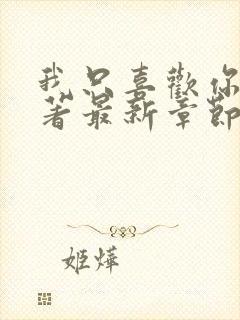 我只喜歡你
著最新章節
姬燁